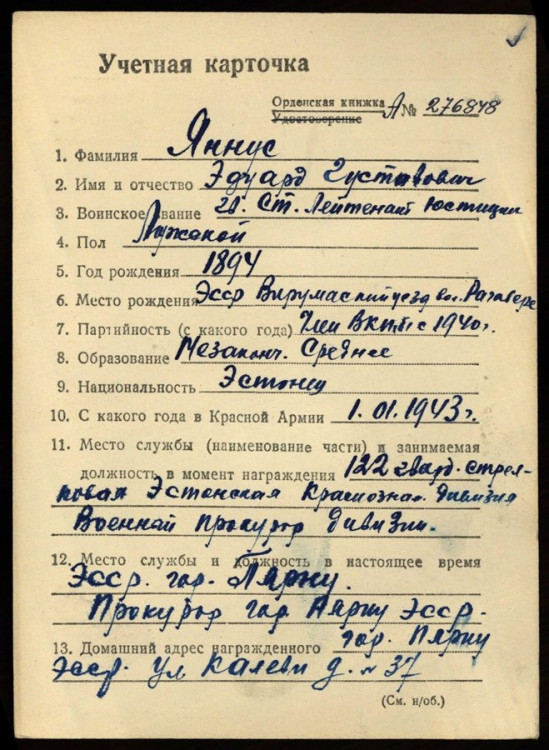 Учетная карточка
Орденская книжка А№ 276848
Удостоверение
1. Фамилия Яннус
2. Имя и отчество Эдуард Густавович
3. Воинское звание гв. Ст. Лейтенант Юстиции
4. Пол Мужской
5. Год рождения 1894
6. Место рождения Эсср Вирумаский уезд вол. Раквере
7. Партийность (с какого года) Член ВКП/б с 1940 г.
8. Образование Незаконч. Среднее
9. Национальность Эстонец
10. С какого года в Красной Армии 1.01.1943 г.
11. Место службы (наименование части) и занимаемая
должность в момент награждения 122 гвард. стрел-
ковая Эстонская Краснознам. Дивизия
Военный прокурор дивизии.
12. Место службы и должность в настоящее время
Эсср. гор. Пярну.
Прокурор гор. Пярну Эсср.
13. Домашний адрес награжденного гор. Пярну
Эсср. ул Калеви д. № 37
(См. н/об.)